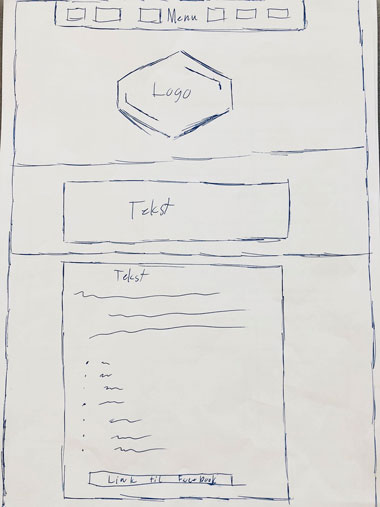 Menu
Logo
Tekst
Tekst
Link til Facebook